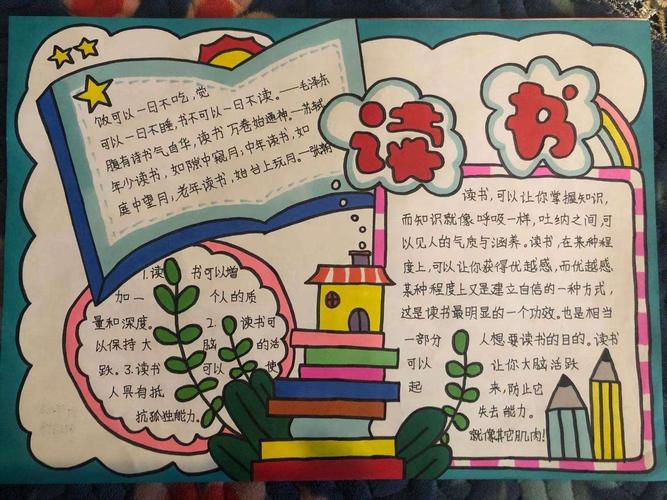 读书
饭可以一日不吃，觉
可以一日不睡，书不可以一日不读。——毛泽东
腹有诗书气自华，读书万卷始通神。—苏轼
年少读书，如隙中窥月；中年读书，如
庭中望月；老年读书，如台上玩月。—张潮
1.读书可以增
加一个人的质
量和深度。2.读书可
以保持大脑的活
跃。3.读书可以使
人具有抵
抗孤独能力。
读书，可以让你掌握知识，
而知识就像呼吸一样，吐纳之间，可
以见人的气质与涵养。读书，在某种程
度上，可以让你获得优越感，而优越感
某种程度上又是建立自信的一种方式，
这是读书最明显的一个功效。也是相当
一部分人想要读书的目的。读书
可以让你大脑活跃
起来，防止它
失去能力。
就像其它肌肉！